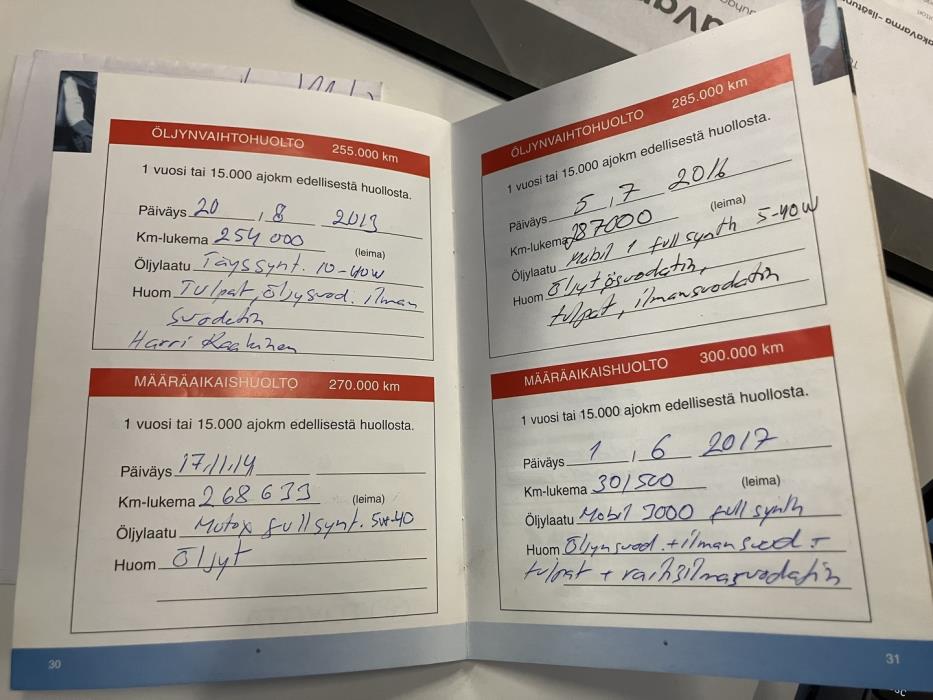 ÖLJYNVAIHTOHUOLTO 255.000 km
1 vuosi tai 15.000 ajokm edellisestä huollosta.
Päiväys 20 . 8 2013
Km-lukema 254 000 (leima)
Öljylaatu Täyssynt. 10-40W
Huom Tulpat, öljysuod. ilman
suodatin
Harri
MÄÄRÄAIKAISHUOLTO 270.000 km
1 vuosi tai 15.000 ajokm edellisestä huollosta.
Päiväys 17.11.14
Km-lukema 268 633 (leima)
Öljylaatu full synt.
Huom Öljyt
30
ÖLJYNVAIHTOHUOLTO 285.000 km
1 vuosi tai 15.000 ajokm edellisestä huollosta.
Päiväys 5 . 7 2016
Km-lukema 287000 (leima)
Öljylaatu Mobil 1 full synth 5-40W
Huom Öljyt ösuodatin,
tulpat, ilmansuodatin
MÄÄRÄAIKAISHUOLTO 300.000 km
1 vuosi tai 15.000 ajokm edellisestä huollosta.
Päiväys 1 . 6 2017
Km-lukema 301500 (leima)
Öljylaatu Mobil 3000 full synth
Huom Öljynsuod. + ilmansuod +
tulpat + raitisilmasuodatin
31